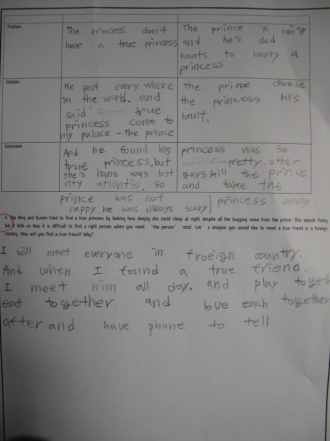 Problem
The princess don't
have a true princess
The prince is noisy
and he's dad
wants to marry a
princess
Solution
He post every where
in the world. and
said: true
princess come to
my palace - The prince
The prince choose
the princess his
want.
Conclusion
And he found his
true princess, but
she's home was lost
city atlantis, so
prince was not
happy he was always scary
princess was so
pretty other
guys kill the prince
and take the
princess away
The King and Queen tried to find a true princess by looking how deeply she could sleep at night despite all the
but it tells us how it is difficult to find a right person when you need "the person" most. Let's imagine you would like to meet a true friend in a foreign
country. How will you find a true friend? Why?
I will meet everyone in froeign country.
And when I found a true friend,
I meet him all day. and play together
eat together. and love each together
after and have phone to tell